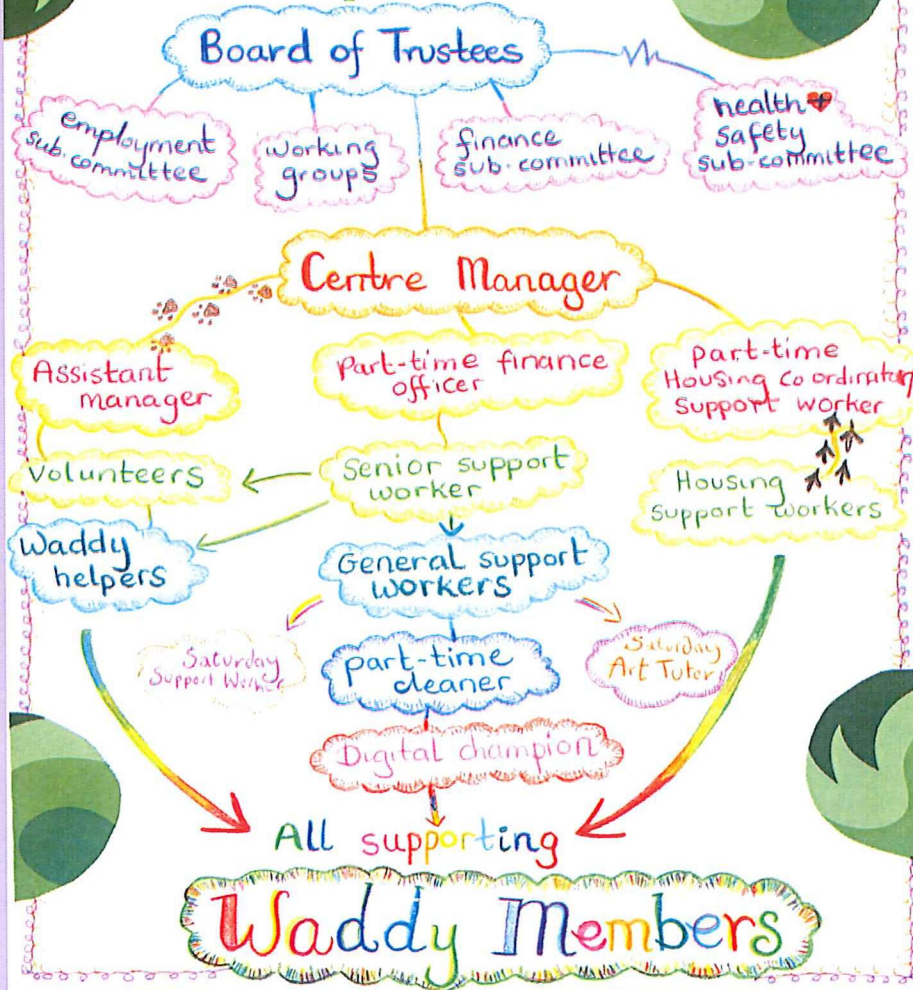 Board of Trustees
employment
sub-committee
working
groups
finance
sub-committee
health +
safety
sub-committee
Centre Manager
Assistant
manager
Part-time finance
officer
part-time
Housing Co ordinator
Support worker
Volunteers
Senior support
worker
Housing
support workers
Waddy
helpers
General support
workers
Saturday
Support Worker
part-time
cleaner
Saturday
Art Tutor
Digital champion
All supporting
Waddy Members